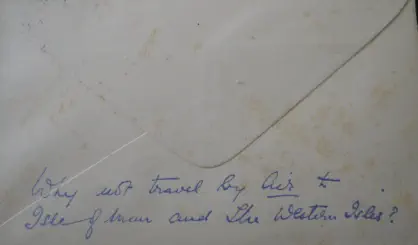 Why not travel by Air to
Isle of Man and The Western Isles?